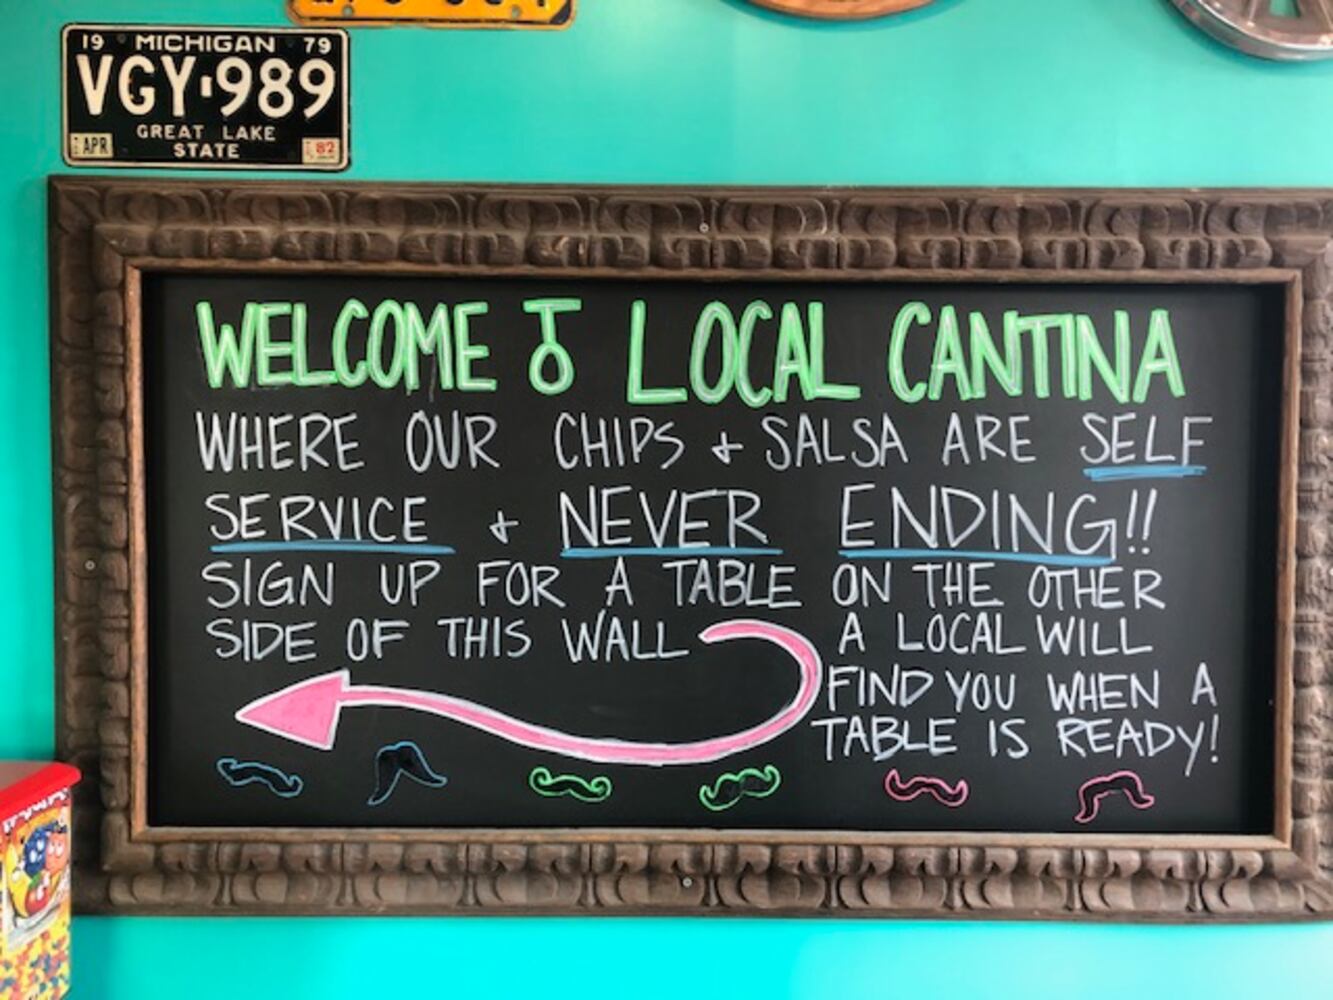 19 MICHIGAN 79
VGY·989
GREAT LAKE
STATE
APR 82
WELCOME TO LOCAL CANTINA
WHERE OUR CHIPS + SALSA ARE SELF
SERVICE + NEVER ENDING!!
SIGN UP FOR A TABLE ON THE OTHER
SIDE OF THIS WALL
A LOCAL WILL
FIND YOU WHEN A
TABLE IS READY!